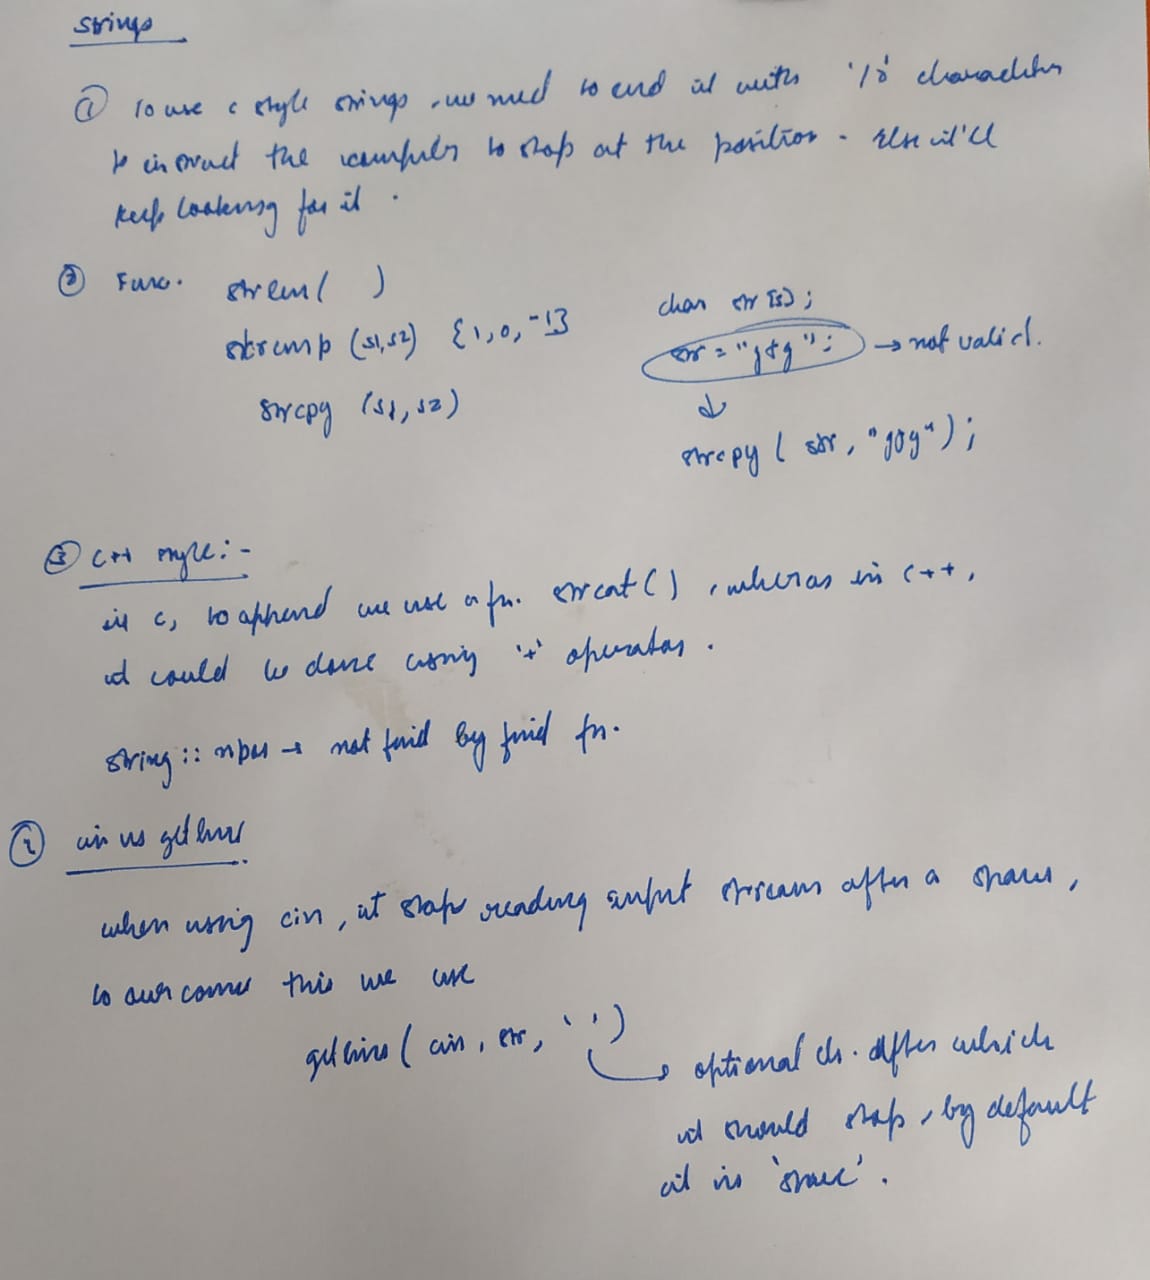 strings
① To use c style strings, we need to end it with '\0' character
to instruct the compiler to stop at the position. Else it'll
keep looking for it.
② Func. strlen( )
strcmp (s1,s2) {1,0,-1}
strcpy (s1,s2)
char str[5];
str = ""; → not valid.
strcpy ( str, "" );
③ C++ style:-
in c, to append we use a fn. strcat(), wheras in c++,
it could be done using '+' operator.
string::npos → not find by find fn.
cin vs getline
when using cin, it stops reading input stream after a space,
to overcome this we use
getline ( cin, str, ' ' )
optional ch. after which
it should stop, by default
it is 'space'.